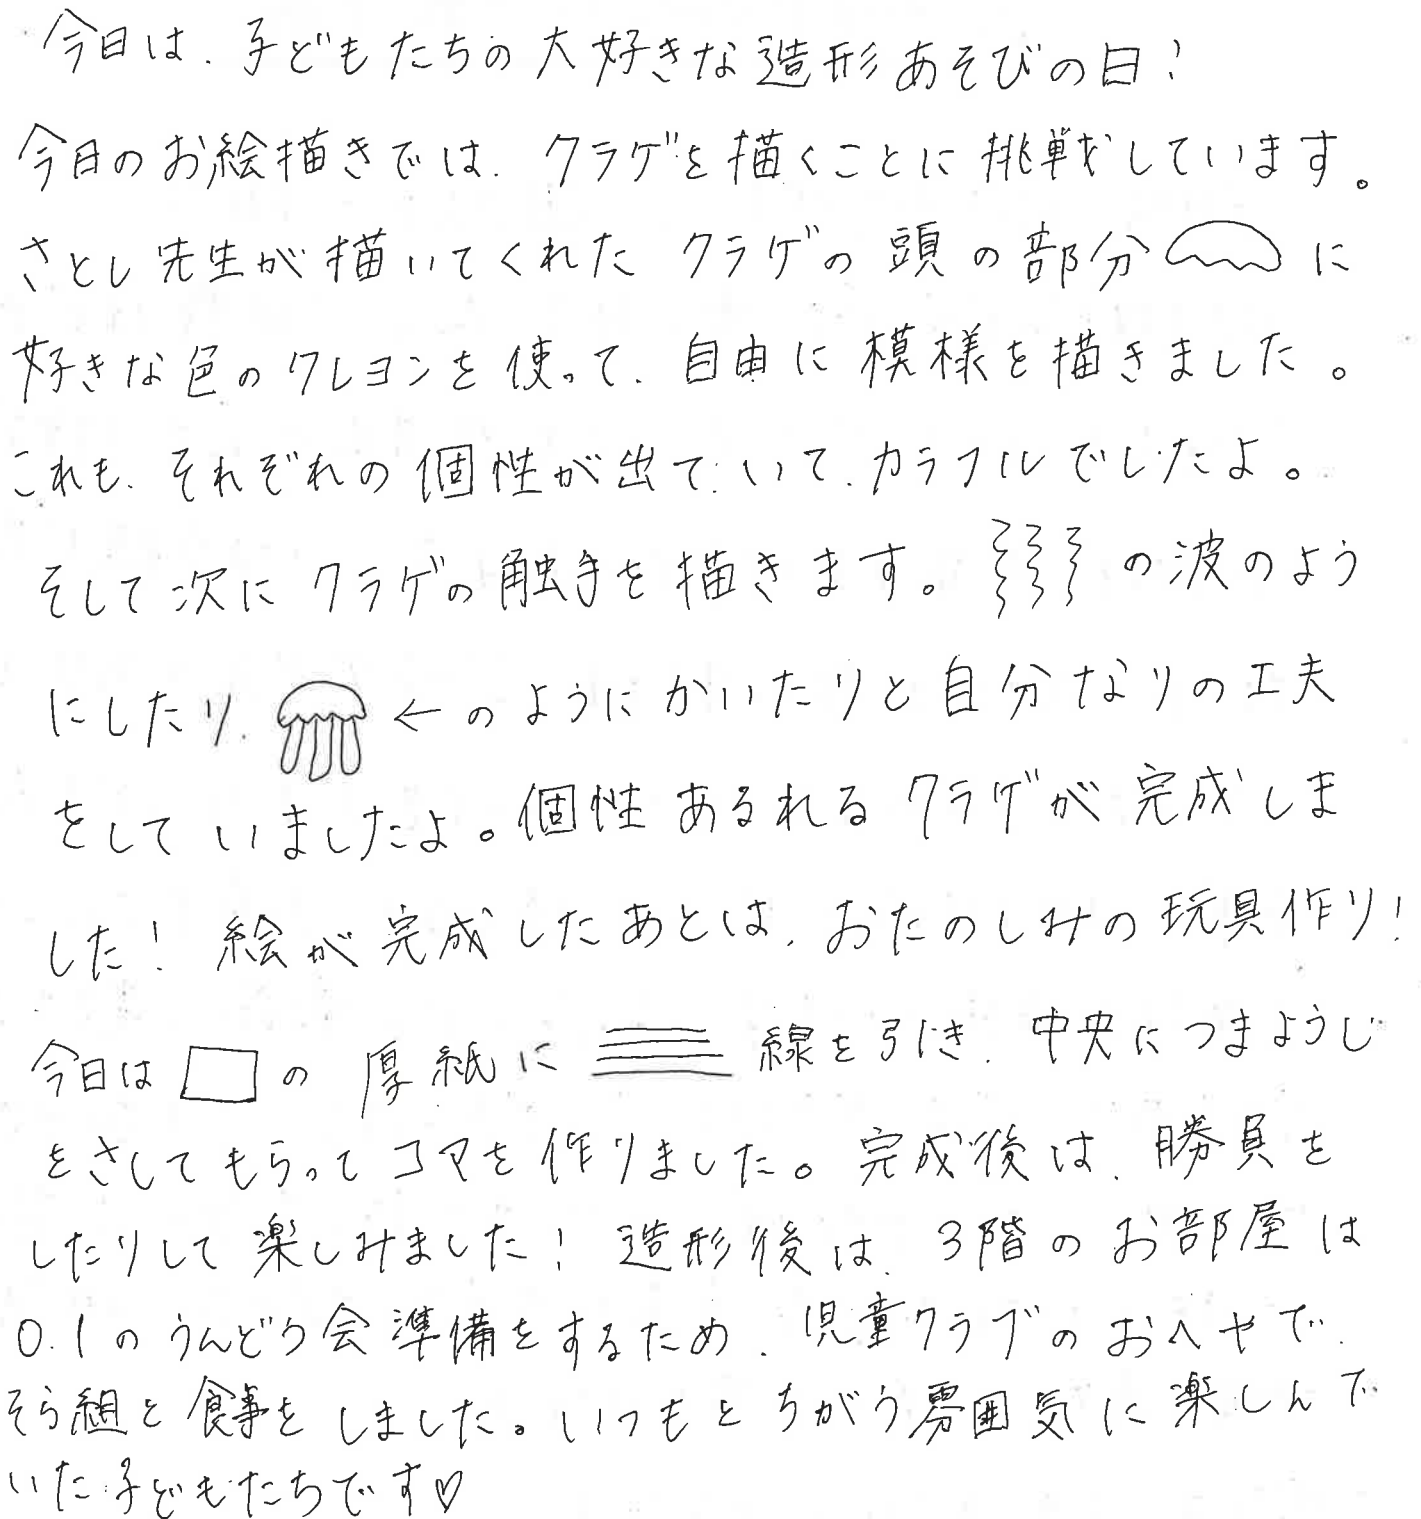 今日は、子どもたちの大好きな造形あそびの日!
今日のお絵描きでは、クラゲを描くことに挑戦しています。
さとし先生が描いてくれたクラゲの頭の部分に
好きな色のクレヨンを使って、自由に模様を描きました。
これも、それぞれの個性が出ていて、カラフルでしたよ。
そして次にクラゲの触手を描きます。の波のよう
にしたり、←のようにかいたりと自分なりの工夫
をしていましたよ。個性あるれるクラゲが完成しま
した!絵が完成したあとは、おたのしみの玩具作り!
今日は□の厚紙に線を引き、中央につまようじ
をさしてもらってコマを作りました。完成後は、勝負を
したりして楽しみました!造形後は、3階のお部屋は
0.1のうんどう会準備をするため、児童クラブのおへやで、
そら組と食事をしました。いつもとちがう雰囲気に楽しんで
いた子どもたちです♡